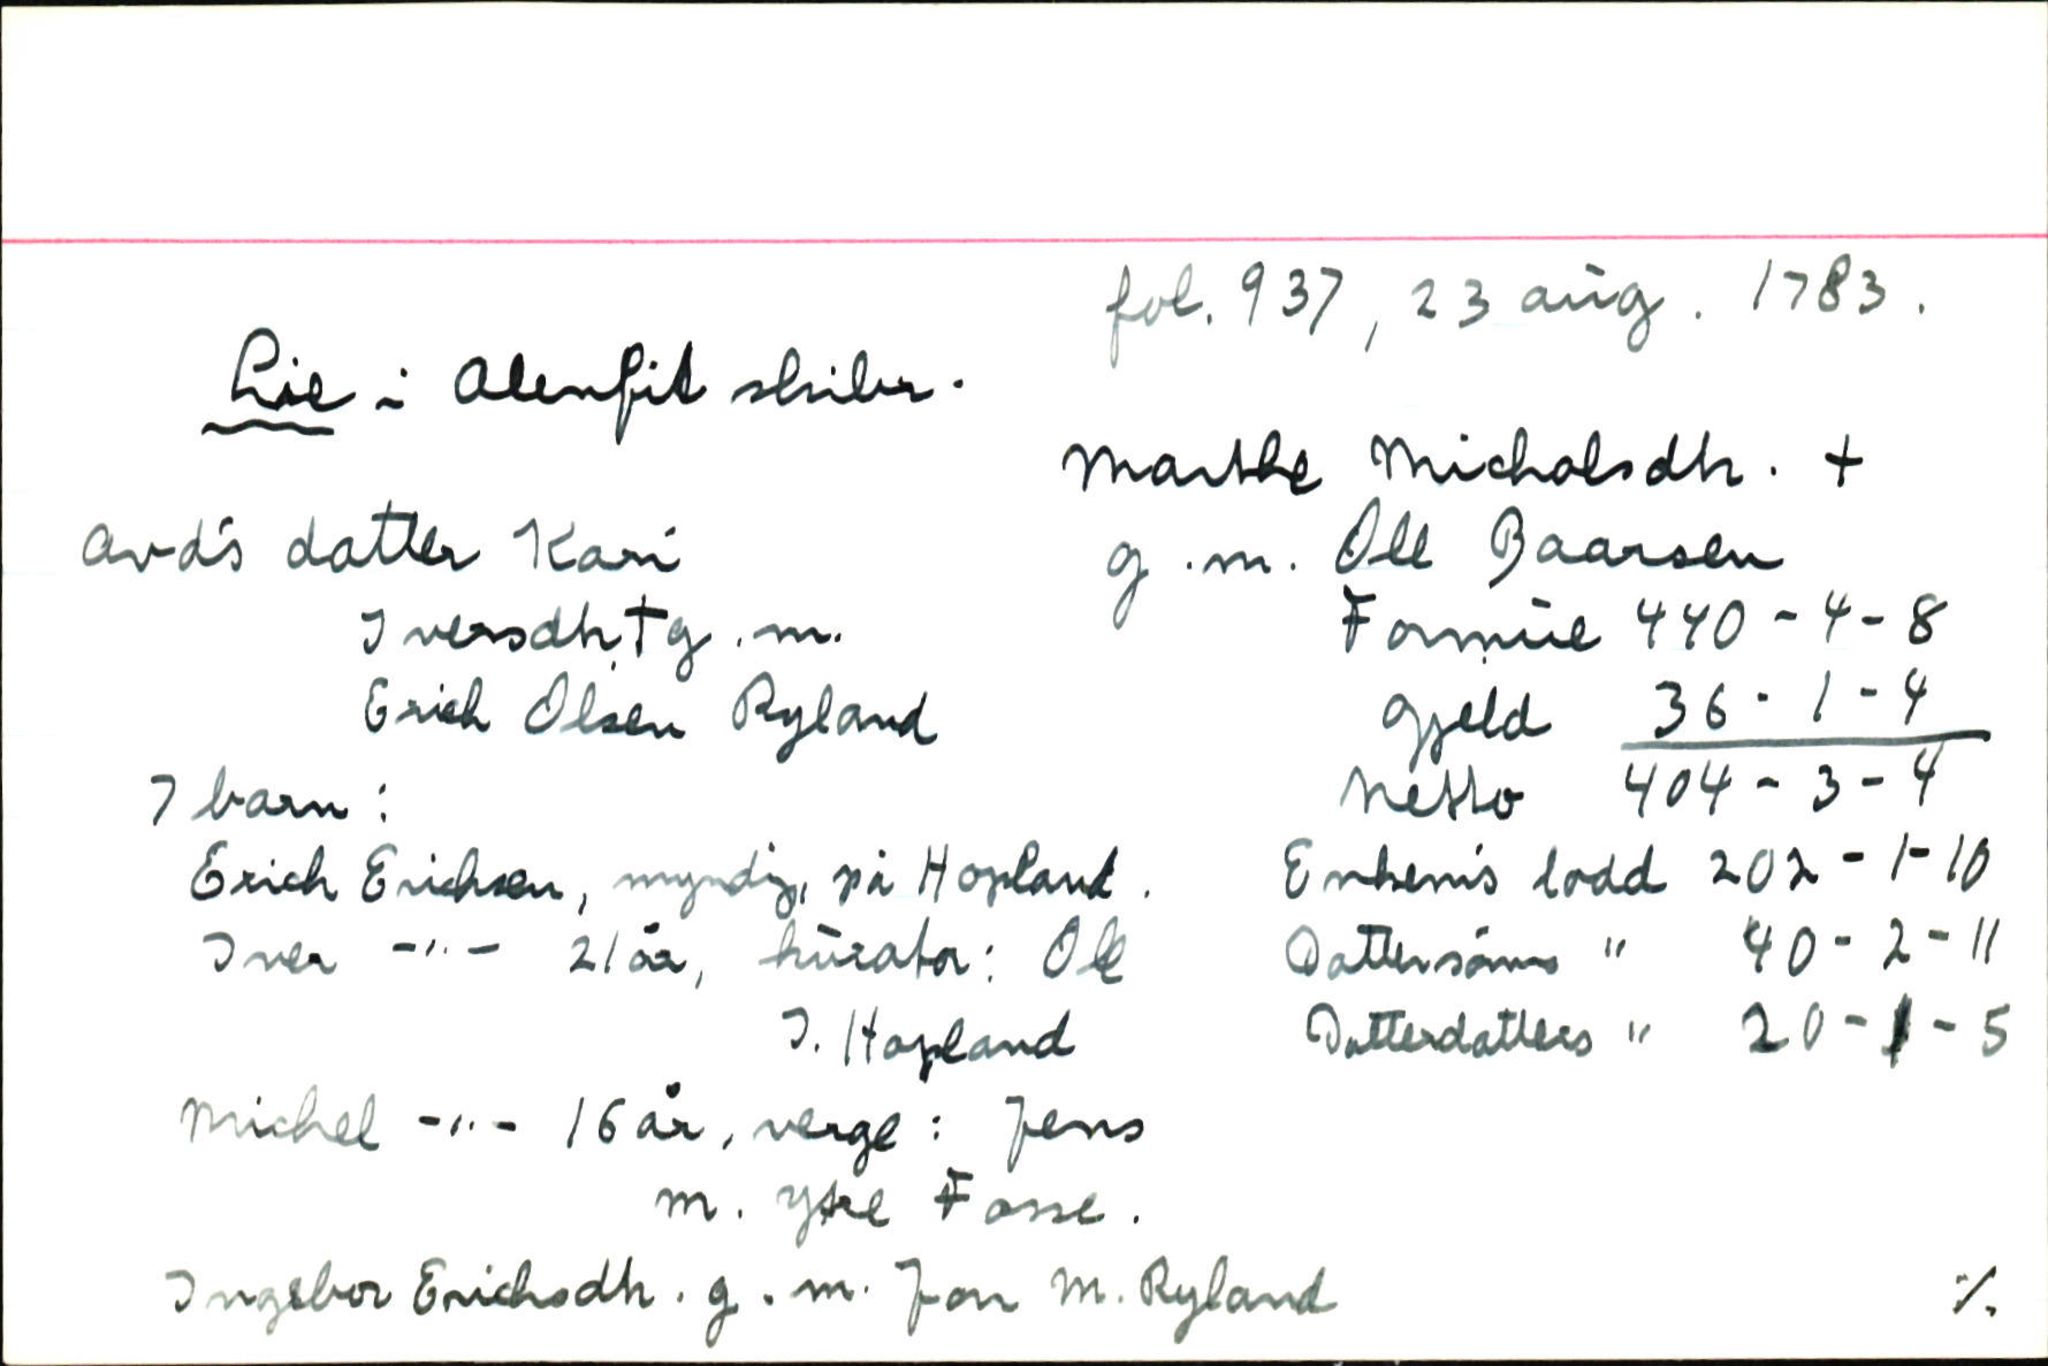 fol. 937, 23 aug. 1783.
Lie i Alenfit skibr.
Marthe Michelsdtr. +
g.m. Ole Baarsen
Formue 440 - 4 - 8
Gjeld 36 - 1 - 4
Netto 404 - 3 - 4
Enkem's lodd 202 - 1 - 10
Dattersøns " 40 - 2 - 11
Datterdatters " 20 - 1 - 5
Avd's datter Kari
Iversdtr. + g.m.
Erich Olsen Ryland
7 barn:
Erich Erichsen, myndig, på Hopland.
Iver -"- 21 år, kurator: Ole
I. Hopland
Michel -"- 16 år, verge: Jens
M. Ytre Fosse.
Ingebor Erichsdtr. g.m. Jon M. Ryland
./.